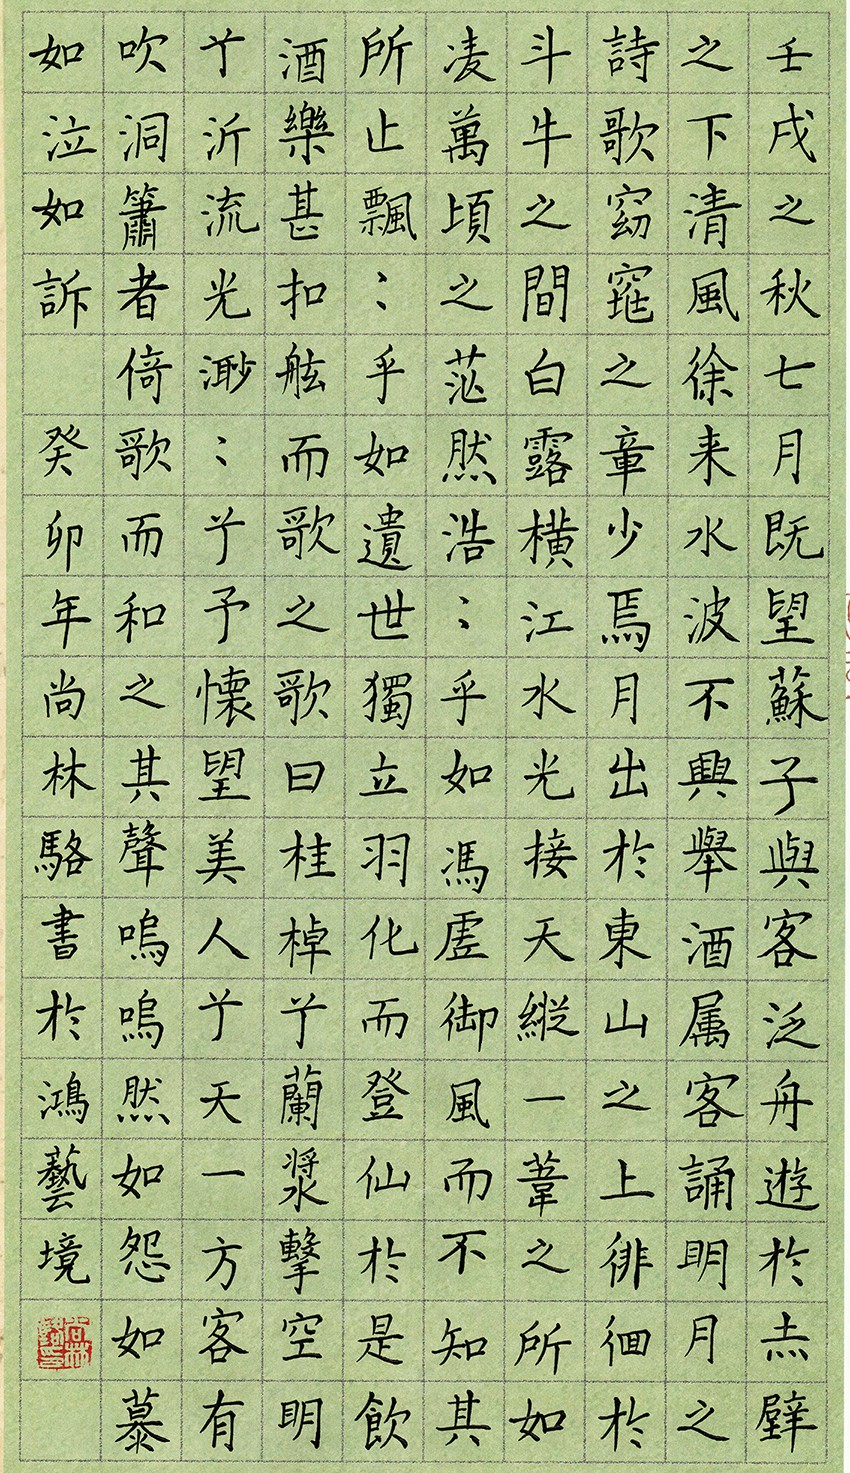 壬戌之秋七月既望蘇子與客泛舟遊於赤壁
之下清風徐来水波不興舉酒属客誦明月之
詩歌窈窕之章少焉月出於東山之上徘徊於
斗牛之間白露横江水光接天縱一葦之所如
凌萬頃之茫然浩：乎如馮虛御風而不知其
所止飄：乎如遺世獨立羽化而登仙於是飲
酒樂甚扣舷而歌之歌曰桂棹兮蘭槳擊空明
兮泝流光渺：兮予懷望美人兮天一方客有
吹洞簫者倚歌而和之其聲嗚嗚然如怨如慕
如泣如訴 癸卯年尚林駱書於鴻藝境